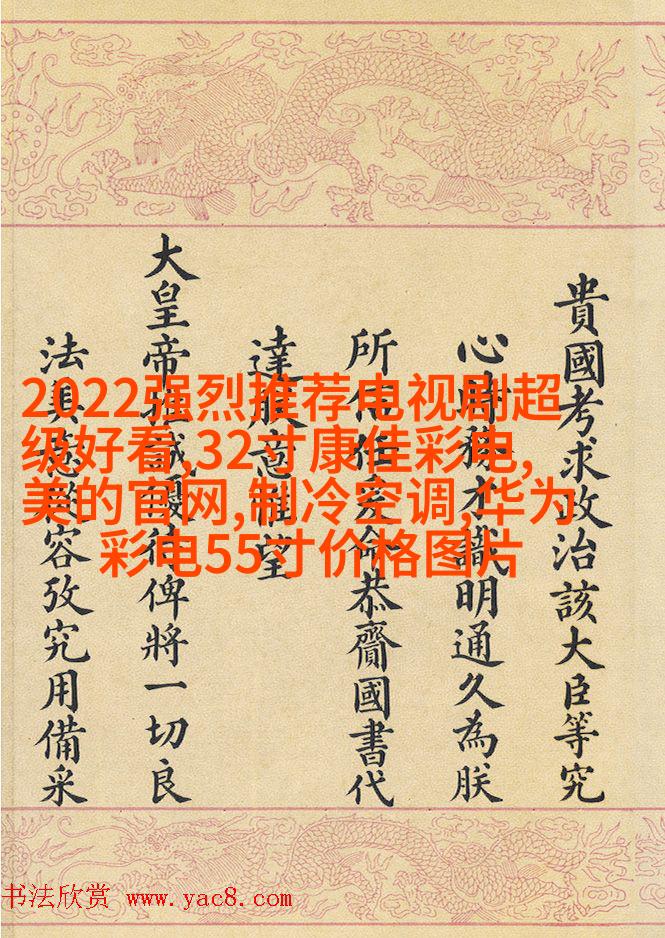 貴國考求政治該大臣等究
心時務才識明通久為朕
所倚任爰命恭齎國書代
達朕意惟望
大皇帝推誠優待俾將一切良
法美容攷究用備采
2022强烈推荐电视剧超
级好看,32寸康佳彩电,
美的官网,制冷空调,华为
彩电55寸价格图片
书法欣赏 www.yac8.com